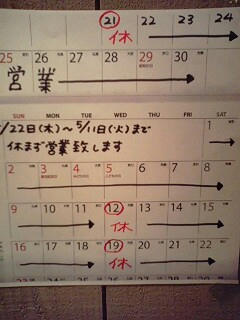 21 22 23 24
休
25 26 27 28 29 30
営業
SUN MON TUE WED THU FRI SAT
/22日(木)〜5/11日(火)まで 1
休まず営業致します
2 3 4 5 6 7 8
9 10 11 12 13 14 15
休
16 17 18 19 20 21 22
休